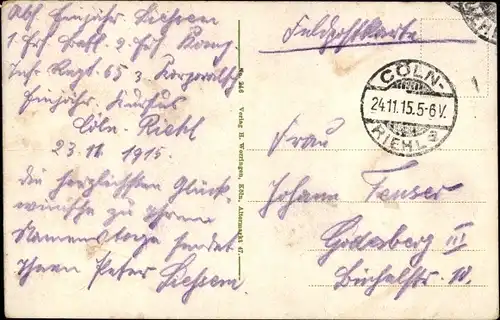 Abs. Einjähr. Liessem
1. Ers. Batl. 2. Ers. Komp.
Inf. Regt. 65 3. Korporalsch.
Einjähr. Kursus
Cöln-Riehl
23.11.1915.
Die herzlichsten Glück-
wünsche zu Ihrem
Namenstage sendet
Ihnen Peter Liessem
No. 246 Verlag H. Worringen, Köln, Altermarkt 47.
Feldpostkarte
CÖLN-
24.11.15.5-6V.
RIEHL
Frau
Johann
Godesberg III